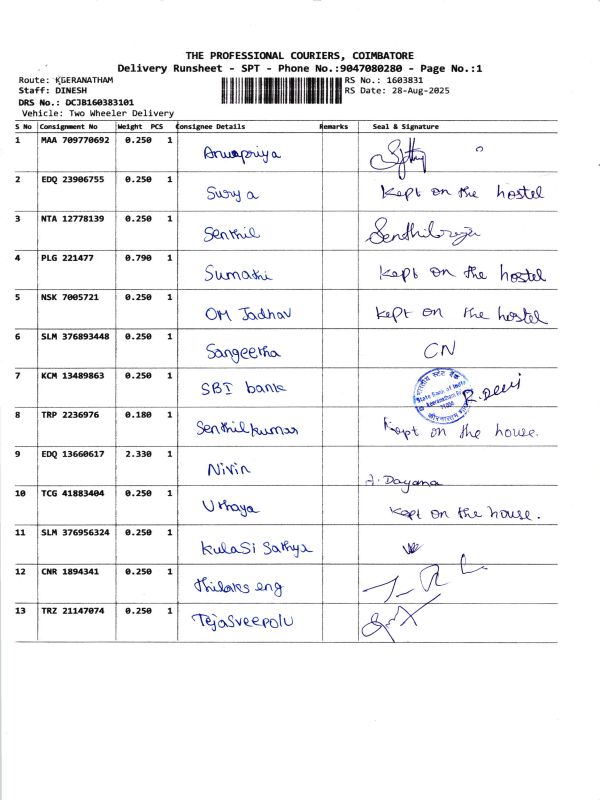 THE PROFESSIONAL COURIERS, COIMBATORE
Delivery Runsheet - SPT - Phone No.:9047080280 - Page No.:1
Route: KEERANATHAM RS No.: 1603831
Staff: DINESH RS Date: 28-Aug-2025
DRS No.: DCJB160383101
Vehicle: Two Wheeler Delivery
S No Consignment No Weight PCS Consignee Details Remarks Seal & Signature
1 MAA 709770692 0.250 1 Anupriya
2 EDQ 23906755 0.250 1 Surya Kept on the hostel
3 NTA 12778139 0.250 1 Senthil Senthilraja
4 PLG 221477 0.790 1 Sumathi Kept on the hostel
5 NSK 7005721 0.250 1 OM Jadhav Kept on the hostel
6 SLM 376893448 0.250 1 Sangeetha CN
7 KCM 13489863 0.250 1 SBI bank State Bank of India R. Devi
8 TRP 2236976 0.180 1 Senthil kumar Kept on the house.
9 EDQ 13660617 2.330 1 Nivin J. Dayana
10 TCG 41883404 0.250 1 Uthaya Kept on the house.
11 SLM 376956324 0.250 1 Kulasi Sathya
12 CNR 1894341 0.250 1 thilaks eng
13 TRZ 21147074 0.250 1 Tejasveepolu